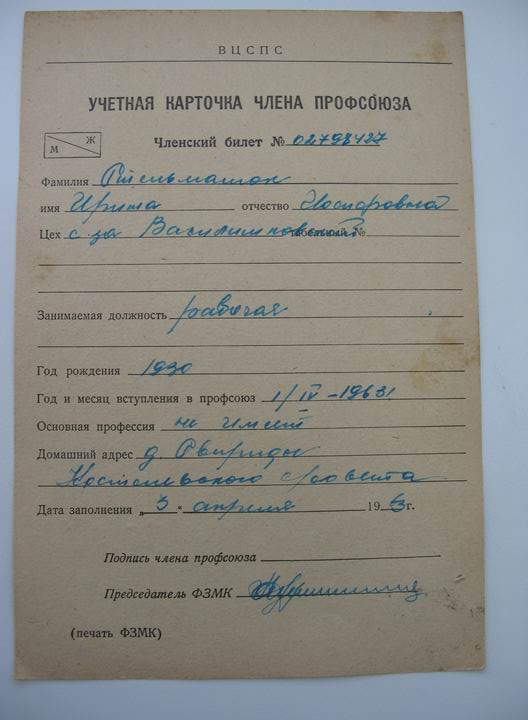 ВЦСПС
УЧЕТНАЯ КАРТОЧКА ЧЛЕНА ПРОФСОЮЗА
М Ж
Членский билет № 02798427
Фамилия
имя Ирина отчество
Цех с-за табельный №
Занимаемая должность рабочая
Год рождения 1930
Год и месяц вступления в профсоюз 1/IV-1963
Основная профессия не имеет
Домашний адрес д.
Дата заполнения „3“ апреля 1963г.
Подпись члена профсоюза
Председатель ФЗМК
(печать ФЗМК)